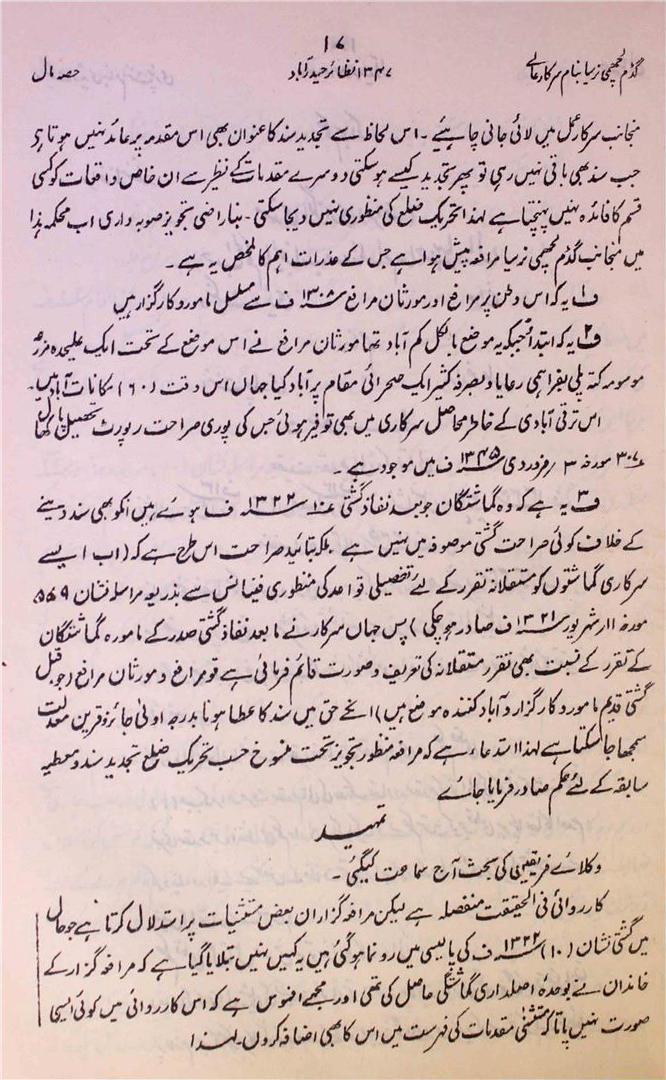 ۱۷
گڈم لچھمی نرسیا بنام سرکار عالی
۱۳۴۷ نظائر حیدرآباد
حصہ مال
منجانب سرکار عمل میں لائی جانی چاہئیے ۔ اس لحاظ سے تجدید سند کا عنوان بھی اس مقدمہ پر عائد نہیں ہوتا ہے
جب سند بھی باقی نہیں رہی تو پھر تجدید کیسے ہوسکتی دوسرے مقدمات کے نظیر سے ان خاص واقعات کو کسی
قسم کا فائدہ نہیں پہنچتا ہے لہذا تحریک ضلع کی منظوری نہیں دیجا سکتی ۔ بناراضی تجویز صوبہ داری اب محکمہ ہذا
میں منجانب گڈم لچھمی نرسیا مرافعہ پیش ہوا ہے جس کے عذرات اہم کا ملخص یہ ہے ۔
ف۱ یہ کہ اس وطن پر مرافع اور مورثان مرافع ۱۳۰۸ ف سے مسلسل مامور و کارگزار ہیں
ف۲ یہ کہ ابتداءً جبکہ یہ موضع بالکل کم آباد تھا مورثان مرافع نے اس موضع کے تحت ایک علیحدہ مزرعہ
موسومہ کتہ پلی بفراہمی رعایا و بصرفہ کثیر ایک صحرائی مقام پر آباد کیا جہاں اس وقت (۶۰) مکانات آباد ہیں ۔
اس ترقی آبادی کے خاطر محاصل سرکاری میں بھی توفیر ہوئی جس کی پوری صراحت رپورٹ تحصیل
۳۰۷ مورخہ ۳ ؍ فروردی ۱۳۴۵ ف میں موجود ہے ۔
ف۳ یہ ہے کہ وہ گماشتگان جو بعد نفاذ گشتی ۱۰ ۱۳۲۲ ف ہوے ہیں انکو بھی سند دینے
کے خلاف کوئی صراحت گشتی موصوفہ میں نہیں ہے ۔ بلکہ بتائید صراحت اس طرح ہے کہ (اب ایسے
سرکاری گماشتوں کو مستقلانہ تقرر کے لئے تفصیلی قواعد کی منظوری فینانس سے بذریعہ مراسلہ نشان ۵۵۹
مورخہ ۱۱؍ شہریور ۱۳۲۱ ف صادر ہوچکی ) پس جہاں سرکار نے مابعد نفاذ گشتی صدر کے مامورہ گماشتگان
کے تقرر کے نسبت بھی تقرر مستقلانہ کی تعریف و صورت قائم فرمائی ہے تو مرافع و مورثان مرافع (جو قبل
گشتی قدیم مامور و کارگزار و آباد کنندہ موضع ہیں) انکے حق میں سند کا عطا ہونا بدرجہ اولی جائز و قرین معدلت
سمجھا جاسکتا ہے لہذا استدعاء ہے کہ مرافعہ منظور تجویز تحت منسوخ حسب تحریک ضلع تجدید سند و معطیہ
سابقہ کے لئے حکم صادر فرمایا جائے
تمہید
وکلائے فریقین کی بحث آج سماعت کیگئی ۔
کارروائی فی الحقیقت منفصلہ ہے لیکن مرافعہ گزاران بعض مستثنیات پر استدلال کرتا ہے جو حال
میں گشتی نشان (۱۰) ۱۳۲۲ ف کی پالیسی میں رونما ہوگئی ہیں یہ کہیں نہیں بتلایا گیا ہے کہ مرافعہ گزار کے
خاندان نے بوعدہ اصلداری گماشتگی حاصل کی تھی اور مجھے افسوس ہے کہ اس کارروائی میں کوئی ایسی
صورت نہیں پاتا کہ مستثنی مقدمات کی فہرست میں اس کا بھی اضافہ کروں ۔ لہذا